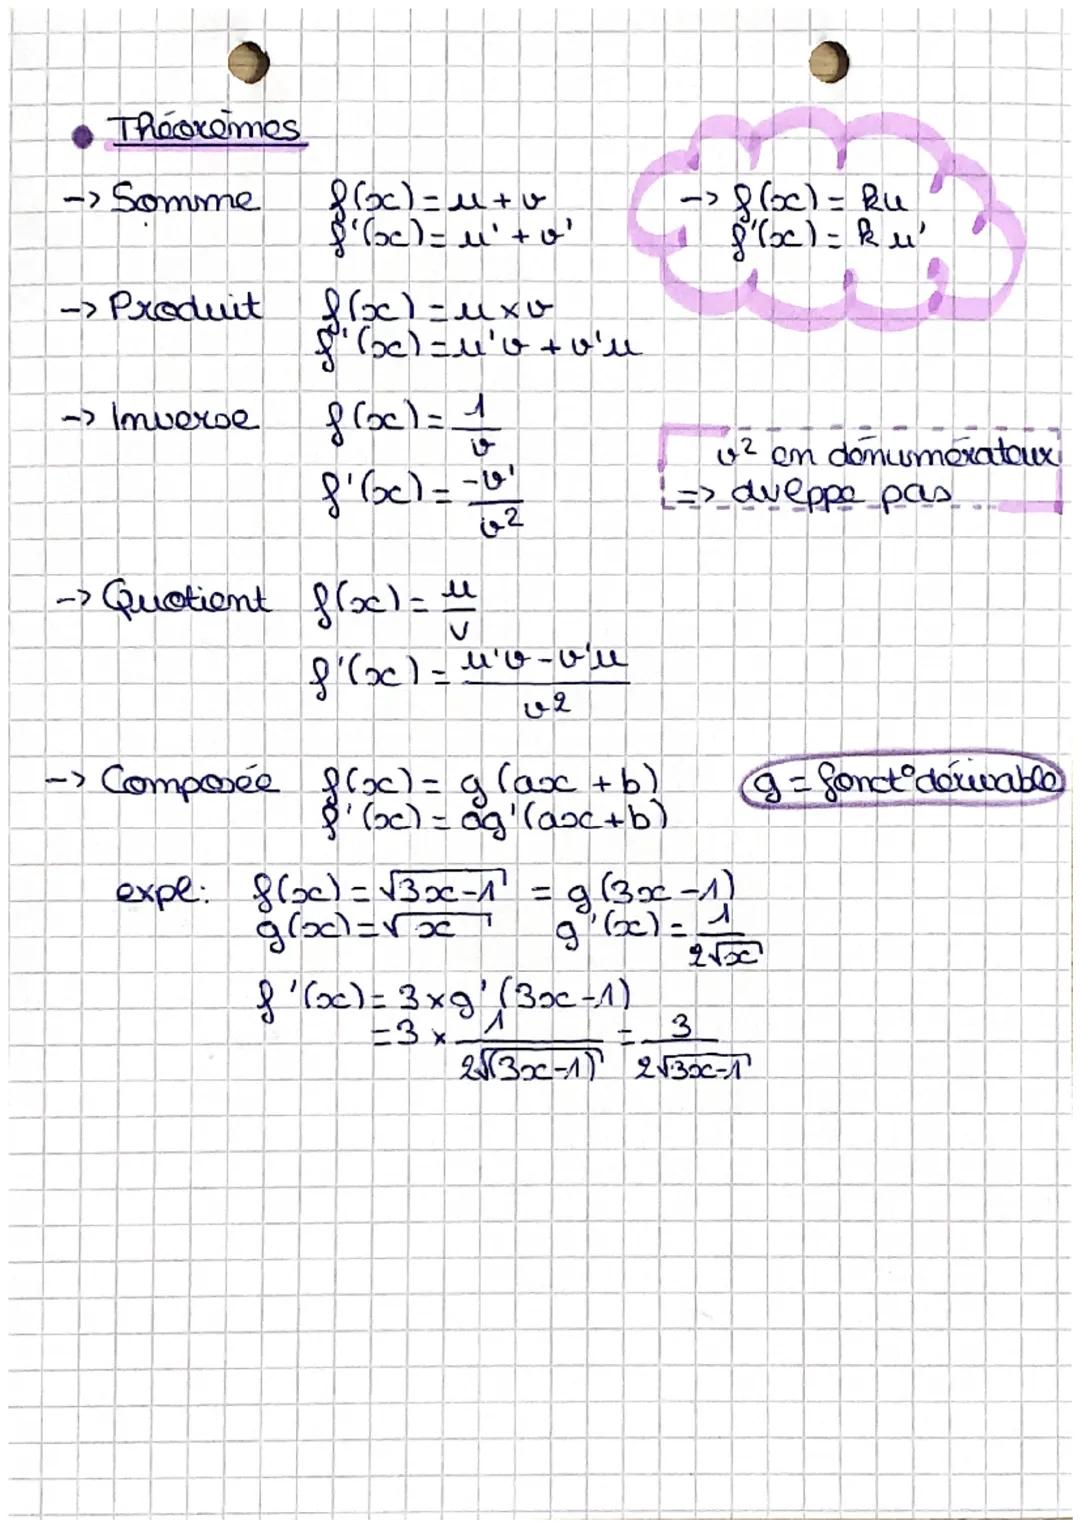 Théorèmes
-> Somme f(x) = u + v
f'(x) = u' + v'
-> f(x) = ku
f'(x) = k u'
-> Produit f(x) = u x v
f'(x) = u'v + v'u
-> Inverse f(x) = 1/v
f'(x) = -v'/v²
v² en dénumérateur
=> dveppe pas
-> Quotient f(x) = u/v
f'(x) = u'v - v'u/v²
-> Composée f(x) = g(ax + b) g = fonct° dérivable
f'(x) = ag'(ax+b)
expl: f(x) = √3x-1 = g(3x-1)
g(x) = √x g'(x) = 1/2√x
f'(x) = 3 x g'(3x-1)
= 3 x 1/2√(3x-1) = 3/2√3x-1